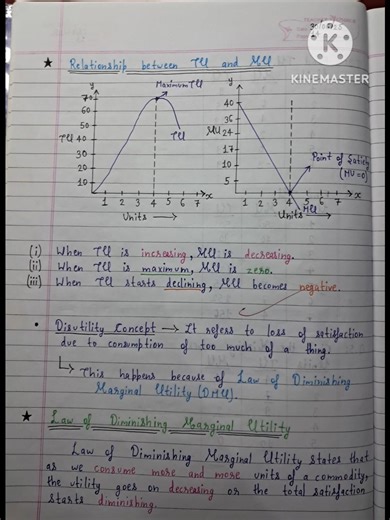 KINEMASTER
★ Relationship between TU and MU
y
Maximum TU
70
60
50
TU 40
30
20
10
TU
1 2 3 4 5 6 7 x
Units →
y
40
36
MU
24
17
10
5
Point of Satiety
(MU=0)
1 2 3 4 5 6 7 x
MU
Units →
(i) When TU is increasing, MU is decreasing.
(ii) When TU is maximum, MU is zero.
(iii) When TU starts declining, MU becomes negative.
• Disutility Concept → It refers to loss of satisfaction
due to consumption of too much of a thing.
↳ This happens because of Law of Diminishing
Marginal Utility (DMU).
★ Law of Diminishing Marginal Utility
Law of Diminishing Marginal Utility states that
as we consume more and more units of a commodity,
the utility goes on decreasing or the total satisfaction
starts diminishing.